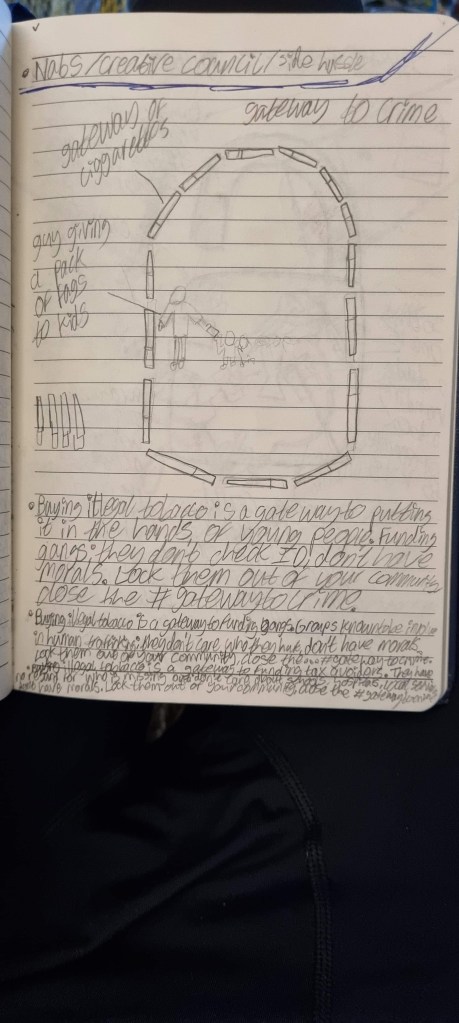 Nabs/creative council/side hussle
gateway of
ciggarettes
gateway to crime
guy giving
a pack
of fags
to kids
• Buying illegal tobacco is a gateway to putting
it in the hands of young people. Funding
gangs. they dont check ID, don't have
morals. Lock them out of your community,
close the #gatewaytocrime.
• Buying illegal tobacco is a gateway to funding gangs. Groups known to be
in human trafficking. they don't care who they hurt, don't have morals.
Lock them out of your community, close the #gatewaytocrime.
illegal tobacco is a gateway to funding tax avoiders. They have
no regard for who is missing out, don't care about schools, hospitals, local
don't have morals. Lock them out of your community, close the #gatewaytocrime